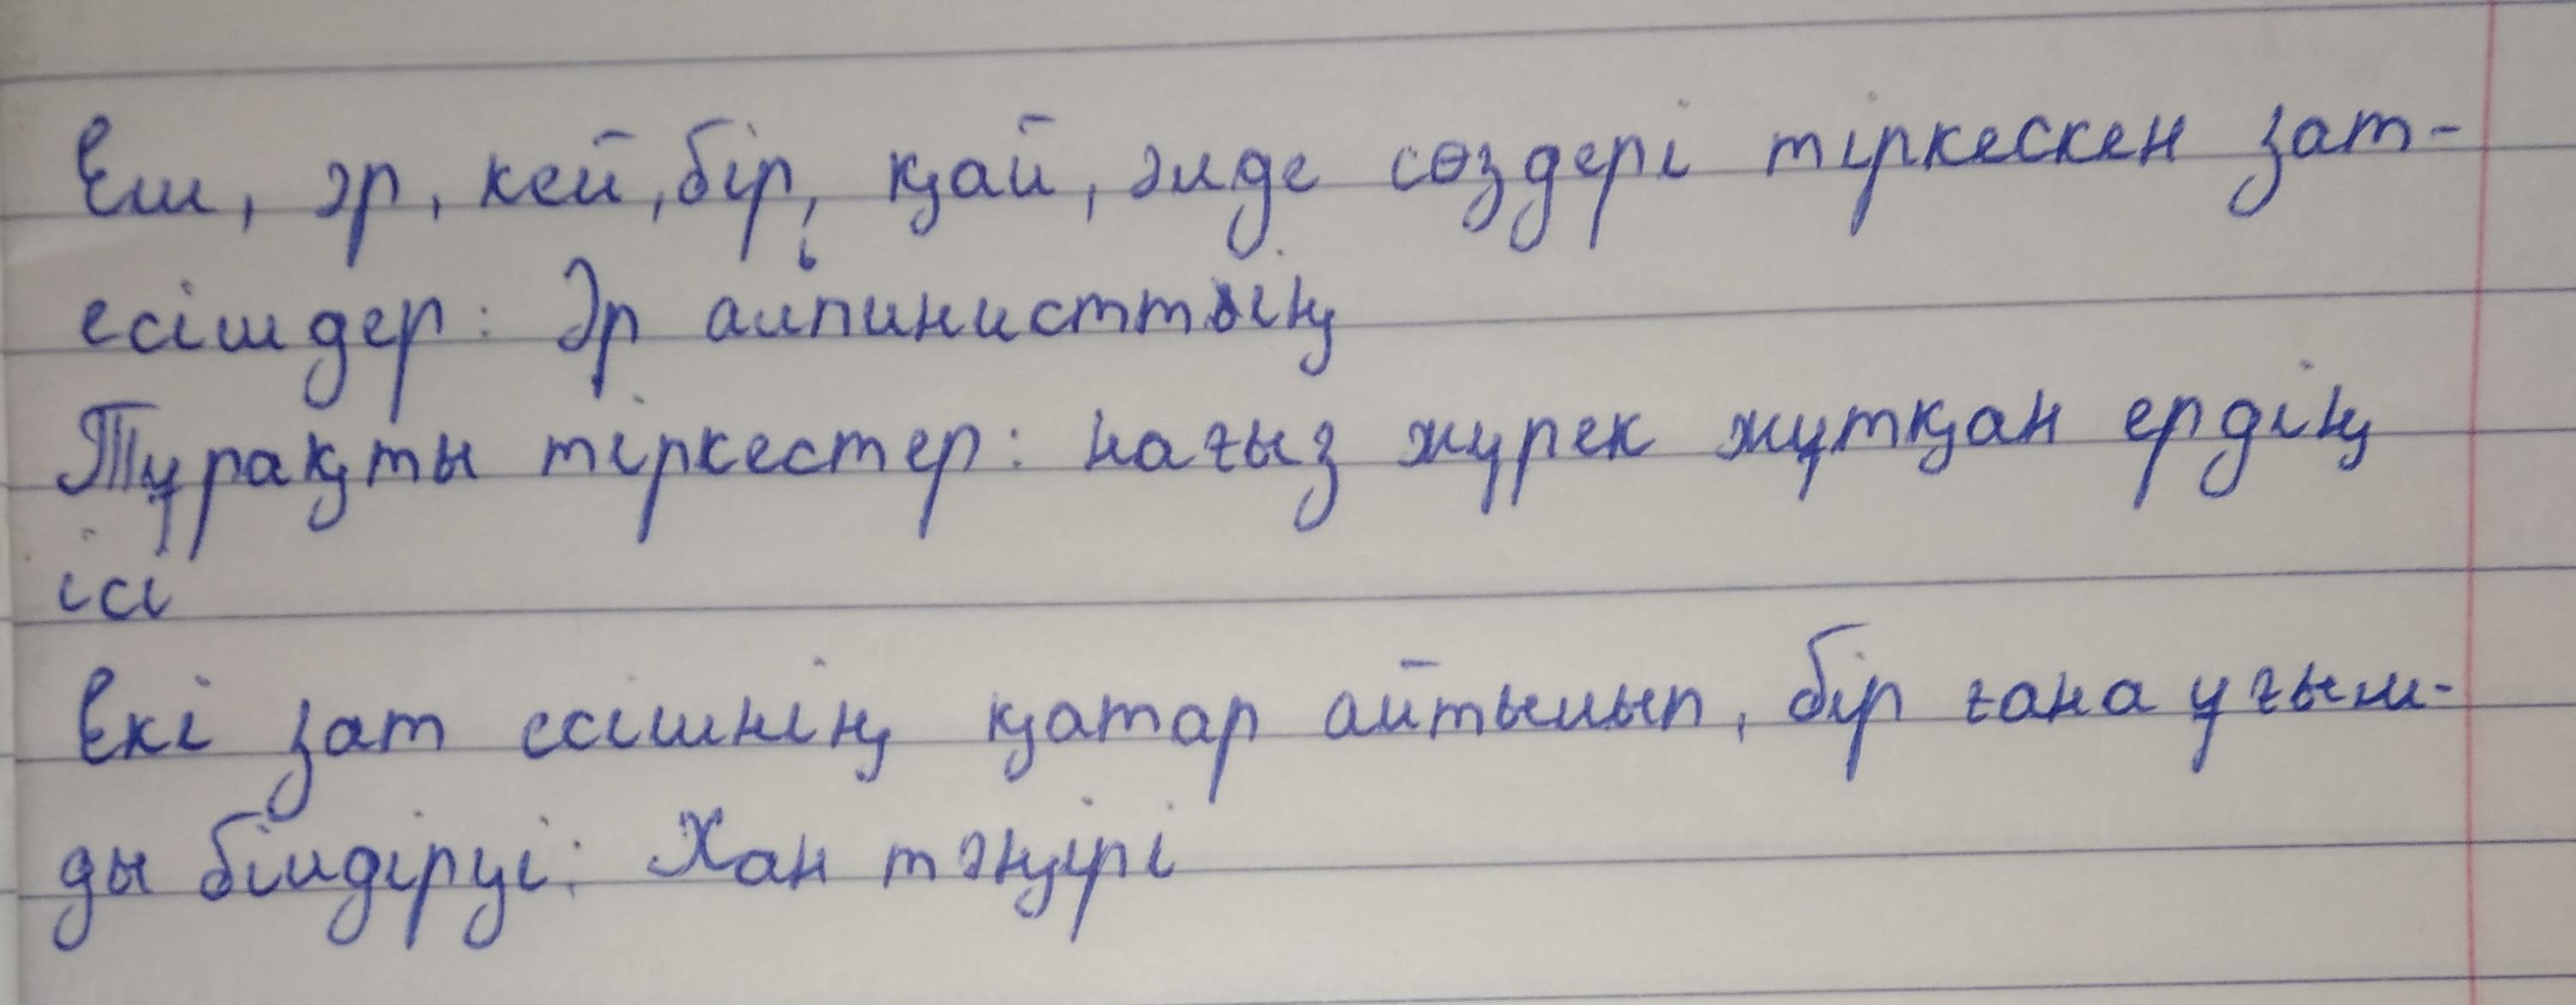 Еш, әр, кей, бір, қай, әлде сөздері тіркескен зат-
есімдер: Әр альпинисттің
Тұрақты тіркестер: нағыз жүрек жұтқан ердің
ісі
Екі зат есімнің қатар айтылып, бір ғана ұғым-
ды білдіруі: Хан тәңірі